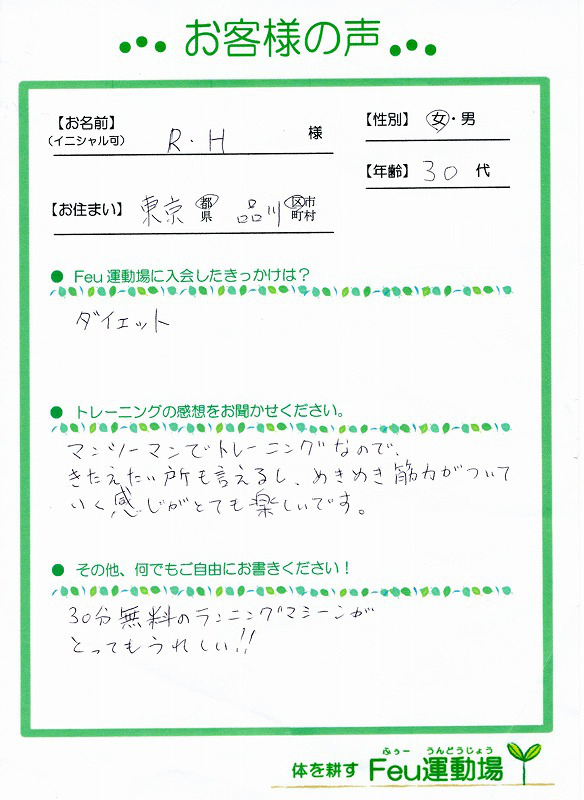 お客様の声
【お名前】
(イニシャル可)
R・H 様
【性別】 女・男
【年齢】 30 代
【お住まい】 東京 都県 品川 区市町村
Feu運動場に入会したきっかけは？
ダイエット
トレーニングの感想をお聞かせください。
マンツーマンでトレーニングなので、
きたえたい所も言えるし、めきめき筋力がついて
いく感じがとても楽しいです。
その他、何でもご自由にお書きください！
30分無料のランニングマシーンが
とってもうれしい!!
ふぅー うんどうじょう
体を耕す Feu運動場